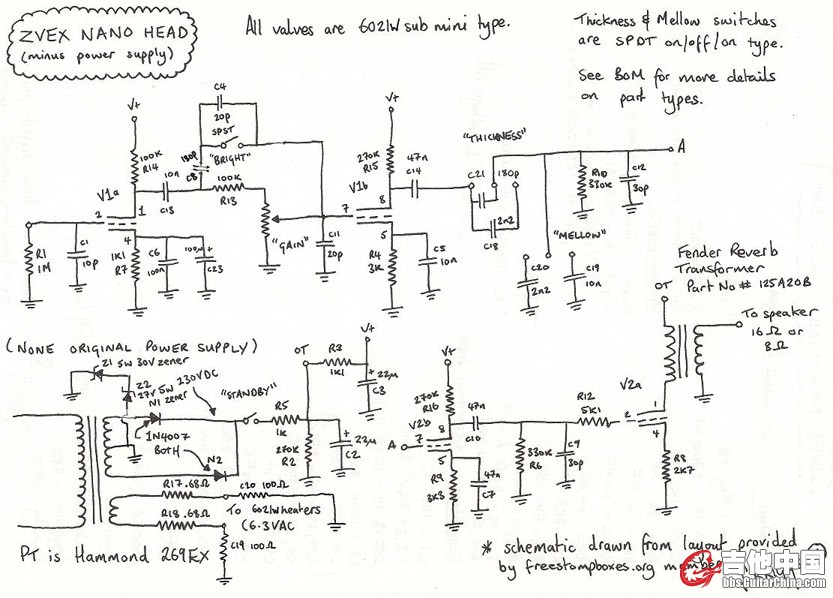 ZVEX NANO HEAD
(minus power supply)
All valves are 6021W sub mini type.
Thickness & Mellow switches
are SPDT on/off/on type.
See BoM for more details
on part types.
C4
20p
SPST
V+
V+
100K
R14
180p
C8
"BRIGHT"
270K
R15
47n
C14
"THICKNESS"
A
V1a
10n
C13
100K
R13
V1b
8
C21
180p
R10
330K
C12
30p
2
1
7
2n2
C18
4
"GAIN"
5
"MELLOW"
R1
1M
C1
10p
1K1
R7
C6
100n
100µ
+
C23
C11
20p
R4
3K
C5
10n
C20
2n2
C19
10n
Fender Reverb
Transformer
Part No # 125A20B
OT
To speaker
16Ω or
8Ω
(NONE ORIGINAL POWER SUPPLY)
Z1 5W 30V zener
Z2
27V 5W
N1 zener
230VDC
"STANDBY"
OT
R3
1K1
V+
+
22µ
C3
V+
270K
R16
47n
C10
R12
5K1
V2a
1N4007
BOTH
N2
R5
1K
270K
R2
+
22µ
C2
A
V2b
7
8
5
330K
R6
C9
30p
2
1
4
R17 .68Ω
C20 100Ω
R18 .68Ω
To 6021W heaters
(6.3VAC
C19 100Ω
R9
3K3
47n
C7
R8
2K7
PT is Hammond 269EX
* schematic drawn from layout provided
by freestompboxes.org member
吉他中国
bbs.GuitarChina.com